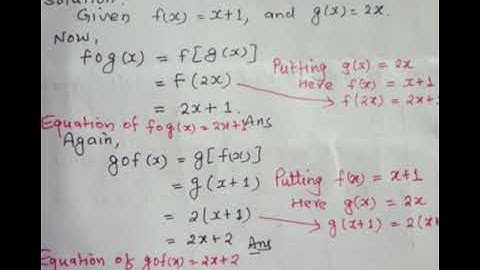 Solution:
Given f(x) = x+1, and g(x) = 2x.
Now,
fog(x) = f[g(x)]
= f(2x)
= 2x+1.
Putting g(x) = 2x
Here f(x) = x+1
f(2x) = 2x+
Equation of fog(x) = 2x+1 Ans
Again,
gof(x) = g[f(x)]
= g(x+1)
= 2(x+1)
= 2x+2 Ans
Putting f(x) = x+1
Here g(x) = 2x
g(x+1) = 2(x
Equation of gof(x) = 2x+2